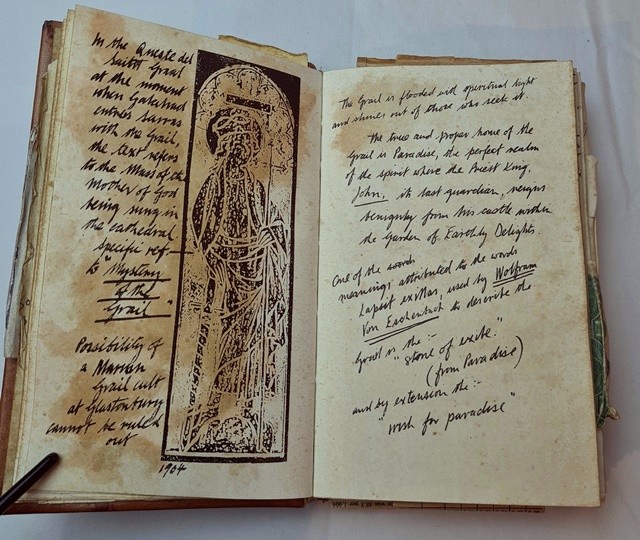 In the Queste del
saint Graal
at the moment
when Galahad
enters Sarras
with the Grail,
the text refers
to the Mass of the
Mother of God
being sung in
the cathedral
specific ref-
to "Mystery
of the
Grail"
Possibility of
a Marian
Grail cult
at Glastonbury
cannot be ruled
out
1904
The Grail is flooded with spiritual light
and shines out of those who seek it.
The true and proper home of the
Grail is Paradise, the perfect realm
of the spirit where the Priest King,
John, its last guardian, reigns
benignly from his castle within
the Garden of Earthly Delights.
One of the words
meanings attributed to the words
Lapsit exillas, used by Wolfram
Von Eschenbach to describe the
Grail is the :-
"stone of exile."
(from Paradise)
and by extension the :-
"wish for paradise"